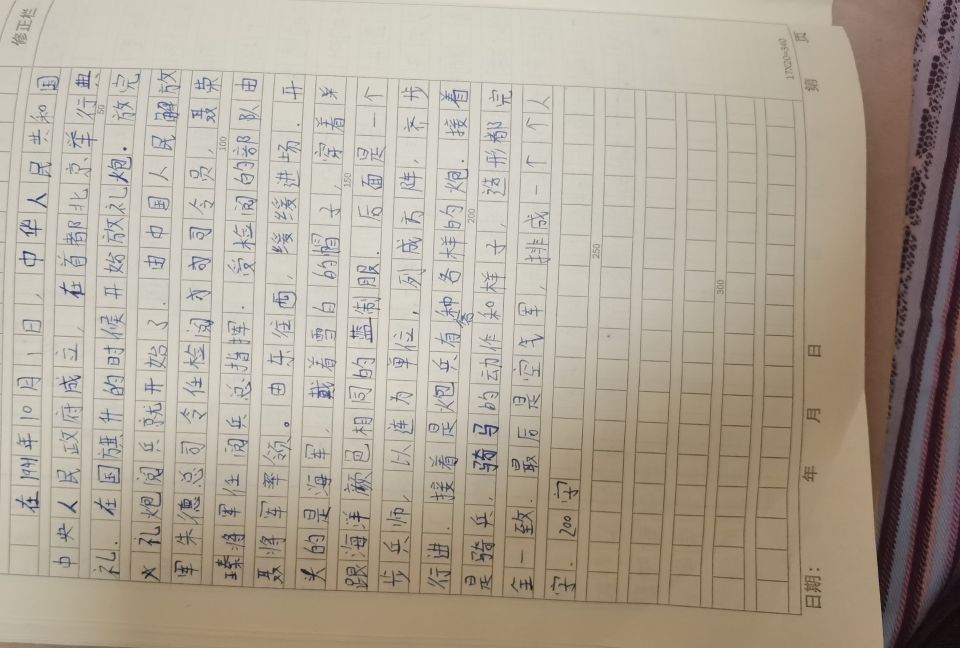 修正栏
在1941年10月1日，中华人民共和国
中央人民政府成立，在首都北京举行典
礼。在国旗升的时候开始放礼炮。放完
礼炮阅兵就开始了．由中国人民解放
军朱德总司令任检阅司令员，聂荣
臻将军任阅兵总指挥．受检阅的部队由
聂将军率领。由东往西，缓缓进场．开
头的是海军，戴着雪白的帽子，穿着
跟海洋颜色相同的蓝制服．后面是一个
步兵师，以连为单位，列成方阵，齐步
行进．接着是炮兵有各种各样的炮．接着
是骑兵．骑马的动作和样子，造形都完
全一致．最后是空气军，排成一个个人
字．200字
50
100
150
200
250
300
17X20=340
第 页
日期： 年 月 日